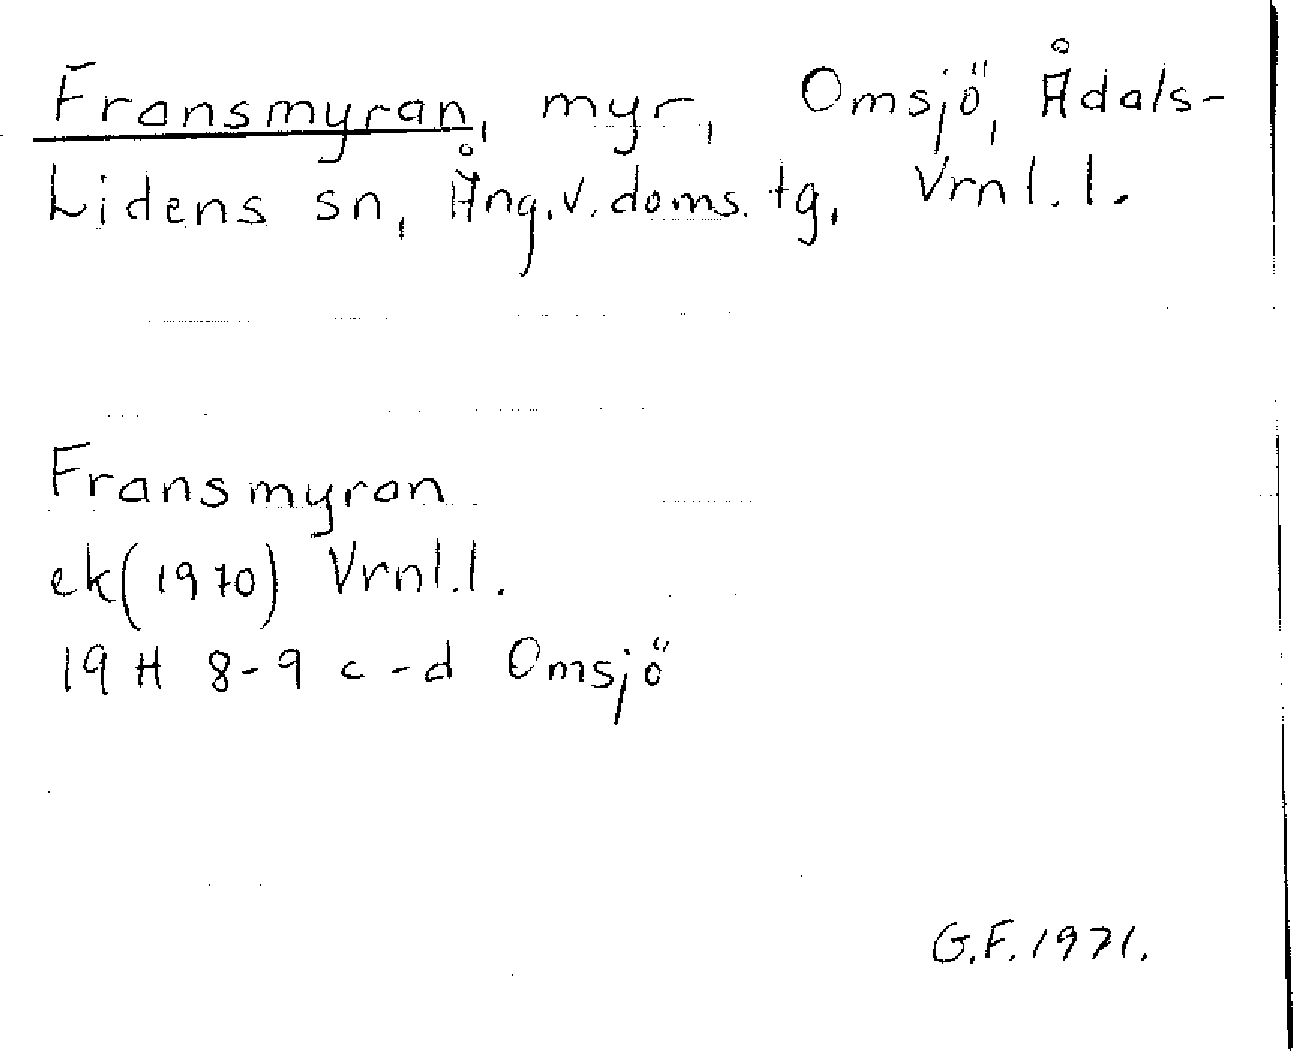 Fransmyran, myr, Omsjö, Ådals-
Lidens sn, Ång.v.doms.tg, Vrnl.l.
Fransmyran
ek(1970) Vrnl.l.
19 H 8-9 c-d Omsjö
G.F. 1971.